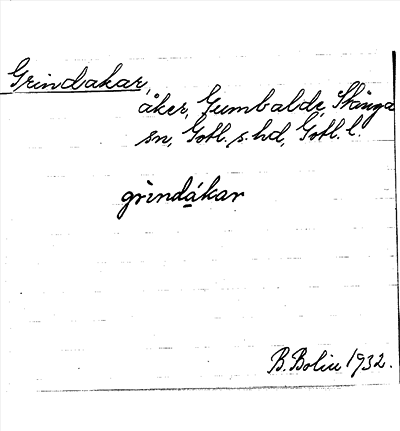 Grindakar,
åker, Gumbalde Stånga
sn, Gotl. s. hd, Gotl. l.
grìndákar
B. Bolin 1932.